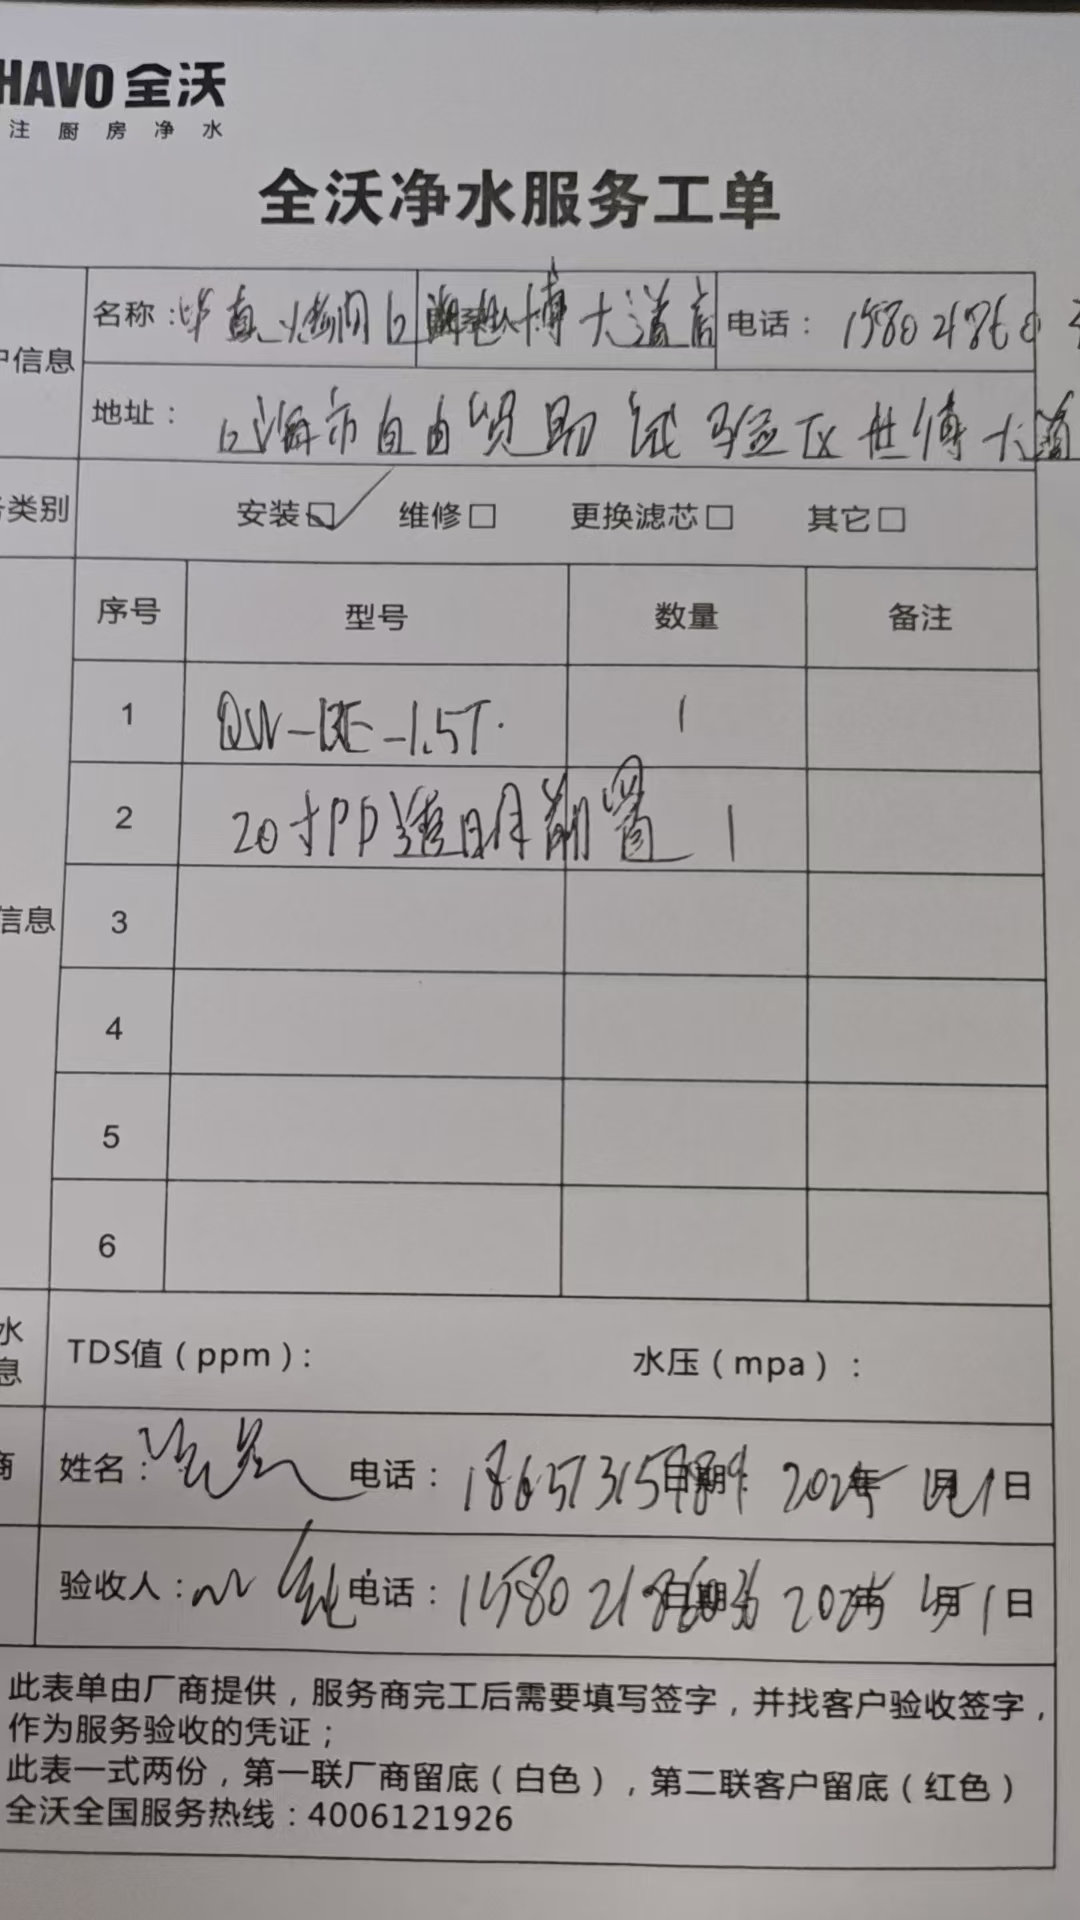 HAVO 全沃
注厨房净水
全沃净水服务工单
户信息
名称： 联系人 博大道店 电话：
地址：上海市自由贸易试验区世博大道
务类别 安装☑ 维修□ 更换滤芯□ 其它□
序号 型号 数量 备注
1 QW-RE-1.5T 1
2 20寸PP透明前置 1
信息
3
4
5
6
水
息
TDS值（ppm）： 水压（mpa）：
商 姓名： 电话： 日期： 年 月1日
验收人： 电话： 日期： 年 月1日
此表单由厂商提供，服务商完工后需要填写签字，并找客户验收签字，
作为服务验收的凭证；
此表一式两份，第一联厂商留底（白色），第二联客户留底（红色）
全沃全国服务热线：4006121926